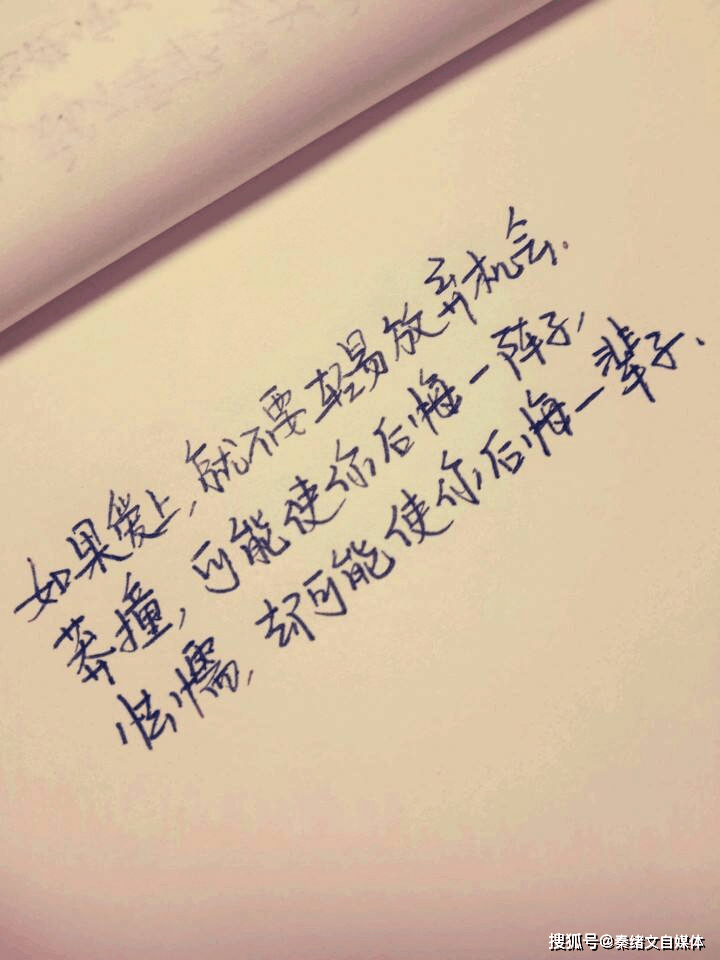 如果爱上,就不要轻易放弃机会.
莽撞,可能使你后悔一阵子,
怯懦,却可能使你后悔一辈子.
搜狐号@秦绪文自媒体